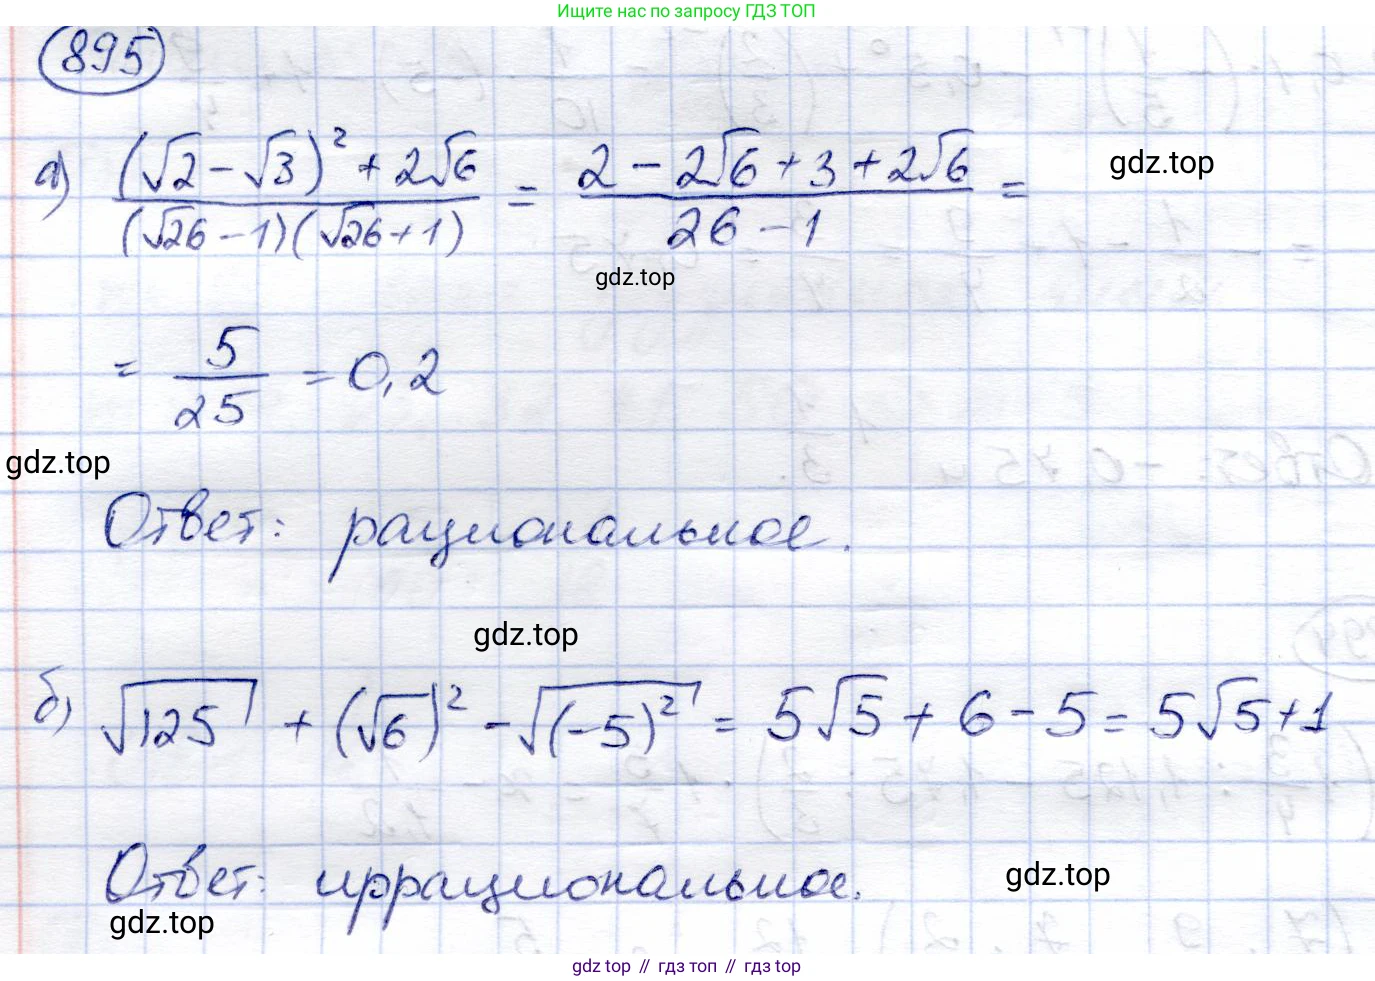 Ищите нас по запросу ГДЗ ТОП
895
а) ((√2 - √3)² + 2√6) / ((√26 - 1)(√26 + 1)) = (2 - 2√6 + 3 + 2√6) / (26 - 1) =
gdz.top
gdz.top
= 5/25 = 0,2
gdz.top
Ответ: рациональное.
gdz.top
б) √125 + (√6)² - √(-5)² = 5√5 + 6 - 5 = 5√5 + 1
Ответ: иррациональное.
gdz.top
gdz.top
gdz top // гдз топ // gdz top